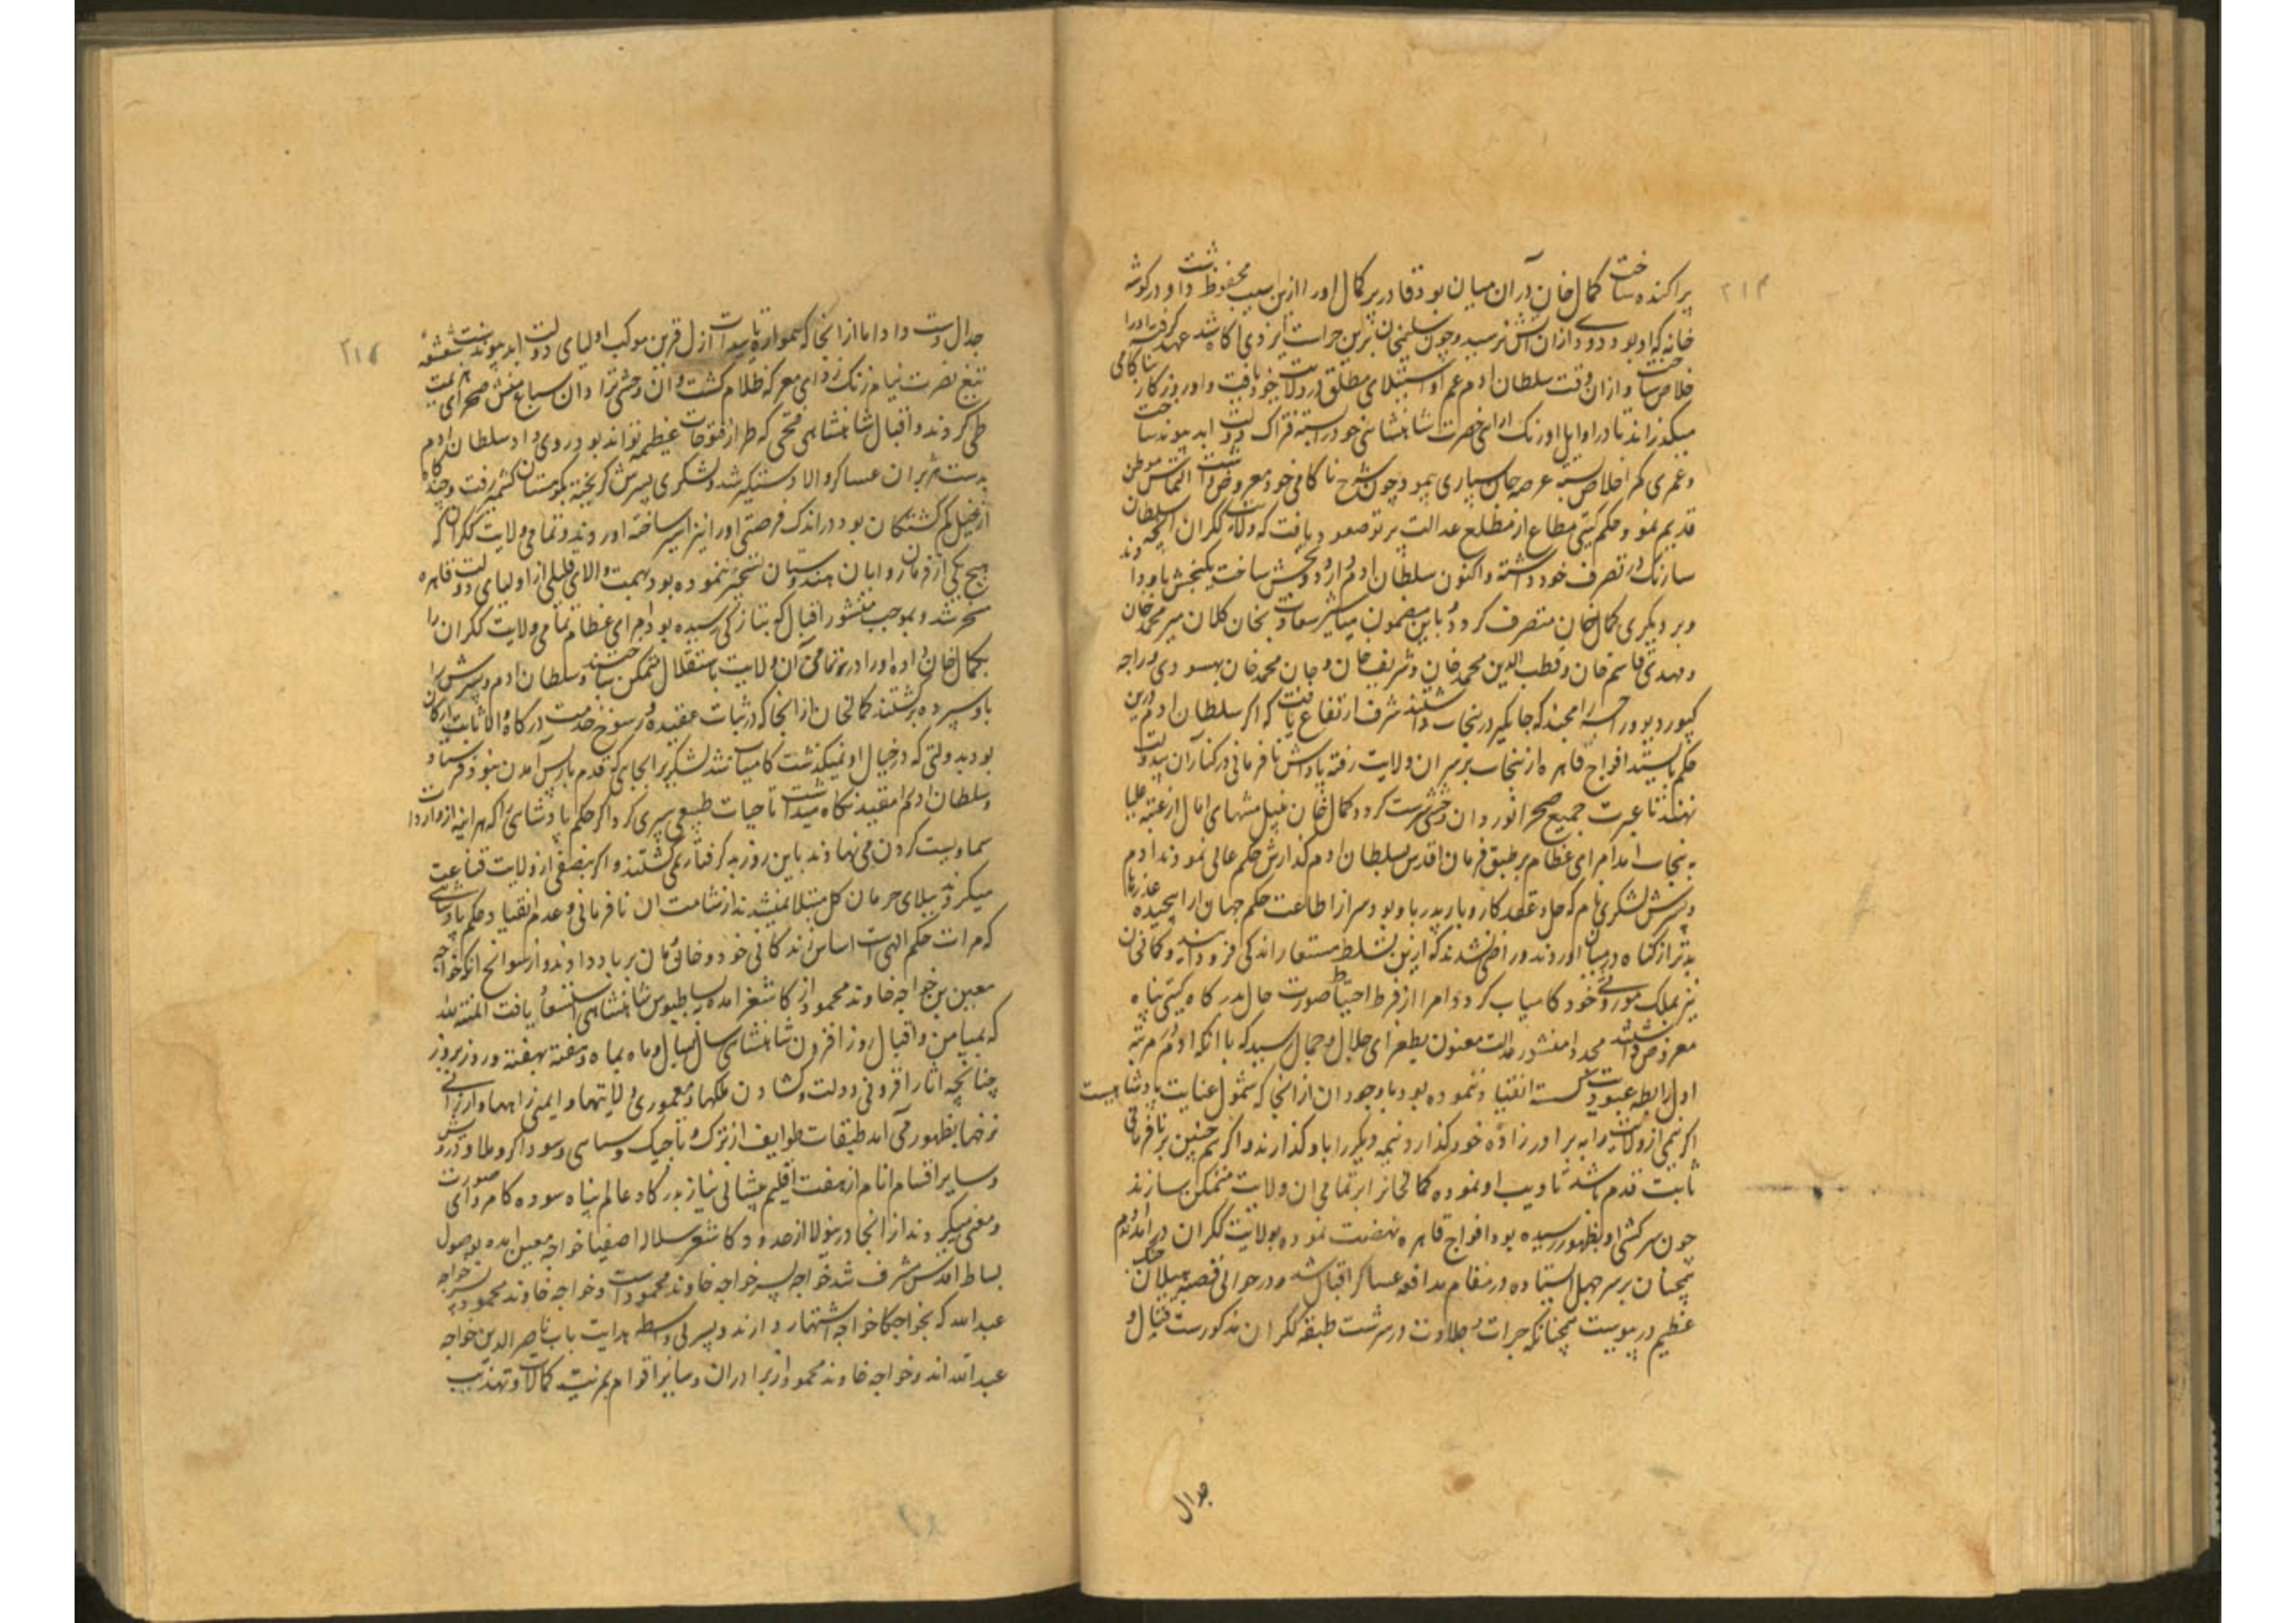 ۲۱۴
پراکنده ساخت کمال خان درآن میان بود قادر پر کمال اورا ازین سیب محفوظ داشت و در گوشه
خانه که او بود دودی ازان آتش نرسید و چون سلیمخان برین حراست ایزدی آگاه شد عهد گرفته اورا
خلاص ساخت و ازان وقت سلطان ادم عم او استیلای مطلق در ولایت خود یافت و او روزگار بناکامی
میگذراند تا در اوایل اورنک ارائی حضرت شاهنشاهی خود را بسته فتراک دولت ابد پیوند ساخت
و عمری کمر اخلاص بسته عرصه جان سپاری پیمود چون شرح ناکامی خود معروض داشت التماس موطن
قدیم نمود حکم گیتی مطاع از مطلع عدالت پرتو صعود یافت که ولایت ککران انچه سلطان
سارنک در تصرف خود داشته و اکنون سلطان ادم ازو دو بخش ساخت یکبخش باو دادند
و بر دیگری کمال خان متصرف گردد و باین مضمون مناشیر سعادت بخان کلان میر محمد خان
و مهدی قاسم خان و قطب الدین محمد خان و شریف خان و جان محمد خان بهسودی و راجه
کپور دیو و رامچند که جاگیر در پنجاب داشتند شرف ارتفاع یافت که اکر سلطان ادم درین
حکم بایستد افواج قاهره از پنجاب بر سر ان ولایت رفته پاداش نافرمانی در کنار آن بیدولت
نهند تا عبرت جمیع صحرا نوردان وحشی سرشت کردد کمال خان بنیل منتهای امال از عتبه علیا
به پنجاب امد امرای عظام بر طبق فرمان اقدس بسلطان ادم گذارش حکم عالی نمودند ادم
و پسرش لشکری نام که حل و عقد کار و بار پدر باو بود سر از اطاعت حکم جهان ارا پیچیده عذرها
بدتر از گناه در میان اوردند و راضی نشدند که ازین تسلط مستعار اندکی فرود آیند و کمالخان
نیز بملک موروثی خود کامیاب کردد امرا از فرط احتیاط صورت حال بدرگاه گیتی پناه
معروض داشتند مجددا منشور عدالت معنون بطغرای جلال و جمال رسید که با انکه ادم مرتبه
اول رابطه عبودیت کسسته انقیاد ننموده بود با وجود ان از انجا که شمول عنایت پادشاهیست
اکر نیمی از ولایت را به برادر زاده خود گذارد و نیمه دیگر را باو گذارند و اکر همچنین بر نافرمانی
ثابت قدم باشد تادیب او نموده کمالخانرا بر تمامی ان ولایت متمکن سازند
چون سرکشی او بظهور رسیده بود افواج قاهره نهضت نموده بولایت ککران در امدند ادم
همچنان بر سر جهل ایستاده در مقام مدافعه عساکر اقبال شد و در حوالی قصبه هیلان جنک
عظیم در پیوست همچنانکه جرات و جلادت در سرشت طبقه ککران مذکورست قتال و
جدال
۲۱۵
جدال دست داد اما از انجا که همواره تاییدات ازل قرین موکب اولیای دولت ابد پیوندست شعشعه
تیغ نصرت نیام زنک زدای معرکه ظلام گشت و ان وحشی نژادان سباع منش صحرای هزیمت
طی کردند و اقبال شاهنشاهی فتحی که طراز فتوحات عظیمه تواند بود روی داد سلطان ادم
بدست هزبران عساکر والا دستگیر شد و لشکری پسرش گریخته بکوهستان کشمیر رفت و چندگاه
از خیل گم گشتگان بود در اندک فرصتی اورا نیز اسیر ساخته اوردند و تمامی ولایت ککران که
هیچ یکی از فرمان روایان هندوستان تسخیر ننموده بود بهمت والای قلیلی از اولیای دولت قاهره
مسخر شد و بموجب منشور اقبال که بتازگی رسیده بود امرای عظام تمامی ولایت ککران را
بکمال خان داده اورا در تمامی آن ولایت باستقلال متمکن ساختند و سلطان ادم و پسرش را
باو سپرده برگشتند کمالخان از انجا که در ثبات عقیده و رسوخ خدمت درگاه والا ثابت ارکان
بود بدولتی که در خیال او نمیگذشت کامیاب شد لشکریرا بجای که قدم باز پس آمدن نبود فرستاد و
سلطان ادم را مقید نگاه میداشت تا حیات طبیعی سپری کرد اکر حکم پادشاهی را که هر اینه از واردات
سماویست کردن می نهادند باین روز بد گرفتار نمی گشتند و اکر بنصفی از ولایت قناعت
میکردند ببلای حرمان کل مبتلا نمیشدند از شامت ان نافرمانی و عدم انقیاد حکم پادشاهی
که مرات حکم الهی است اساس زندگانی خود و خانمان برباد دادند و از سوانح انکه خواجه
معین بن خواجه خاوند محمود از کاشغر امده ببساط بوس شاهنشاهی استسعاد یافت المنته لله
که بمیامن و اقبال روز افزون شاهنشاهی سال بسال و ماه بماه و هفته بهفته و روز بروز
چنانچه اثار افزونی دولت و گشادن ملکها و معموری ولایتها و ایمنی راهها و ارزانی
نرخها بظهور می آمد طبقات طوایف از ترک و تاجیک و سپاهی و سوداگر و ملا و درویش
و سایر اقسام انام از هفت اقلیم پیشانی نیاز بدرگاه عالم پناه سوده کامروای صورت
و معنی میکردند از انجا درینولا از حدود کاشغر سلاله اصفیا خواجه معین امده بوصول
بساط اقدس مشرف شد خواجه پسر خواجه خاوند محمودست و خواجه خاوند محمود پسر خواجه
عبدالله که بخواجکا خواجه اشتهار دارند و پسر بی واسطه هدایت باب ناصر الدین خواجه
عبدالله اند و خواجه خاوند محمود از برادران و سایر اقوام بمزیت کمالات و تهذیب